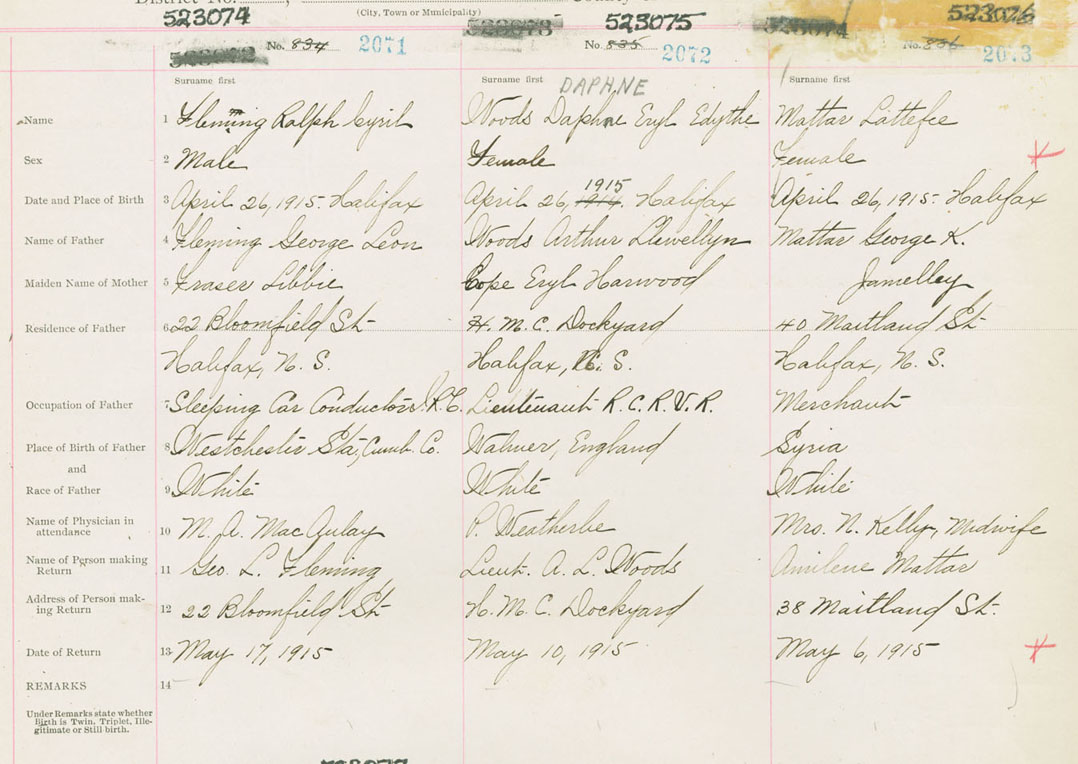 District No.
(City, Town or Municipality)
523074 523075 523076
No. 834 2071 No. 835 2072 No. 836 2073
Surname first Surname first Surname first
DAPHNE
Name 1 Fleming Ralph Cyril Woods Daphne Eryl Edythe Mattar Lattefee
Sex 2 Male Female Female
1915
Date and Place of Birth 3 April 26, 1915 - Halifax April 26, 1914. Halifax April 26, 1915 - Halifax
Name of Father 4 Fleming George Leon Woods Arthur Llewellyn Mattar George K.
Maiden Name of Mother 5 Fraser Libbie Cope Eryl Harwood Jamelley
Residence of Father 6 22 Bloomfield St H. M. C. Dockyard 40 Maitland St
Halifax, N. S. Halifax, N. S. Halifax, N. S.
Occupation of Father 7 Sleeping Car Conductor Lieutenant R. C. R. V. R. Merchant
Place of Birth of Father 8 Westchester Sta, Cumb. Co. Walmer, England Syria
and
Race of Father 9 White White White
Name of Physician in attendance 10 M. A. MacAulay P. Weatherbe Mrs. N. Kelly, Midwife
Name of Person making Return 11 Geo. L. Fleming Lieut. A. L. Woods Mattar
Address of Person making Return 12 22 Bloomfield St H. M. C. Dockyard 38 Maitland St.
Date of Return 13 May 17, 1915 May 10, 1915 May 6, 1915
REMARKS 14
Under Remarks state whether
Birth is Twin, Triplet, Ille-
gitimate or Still birth.